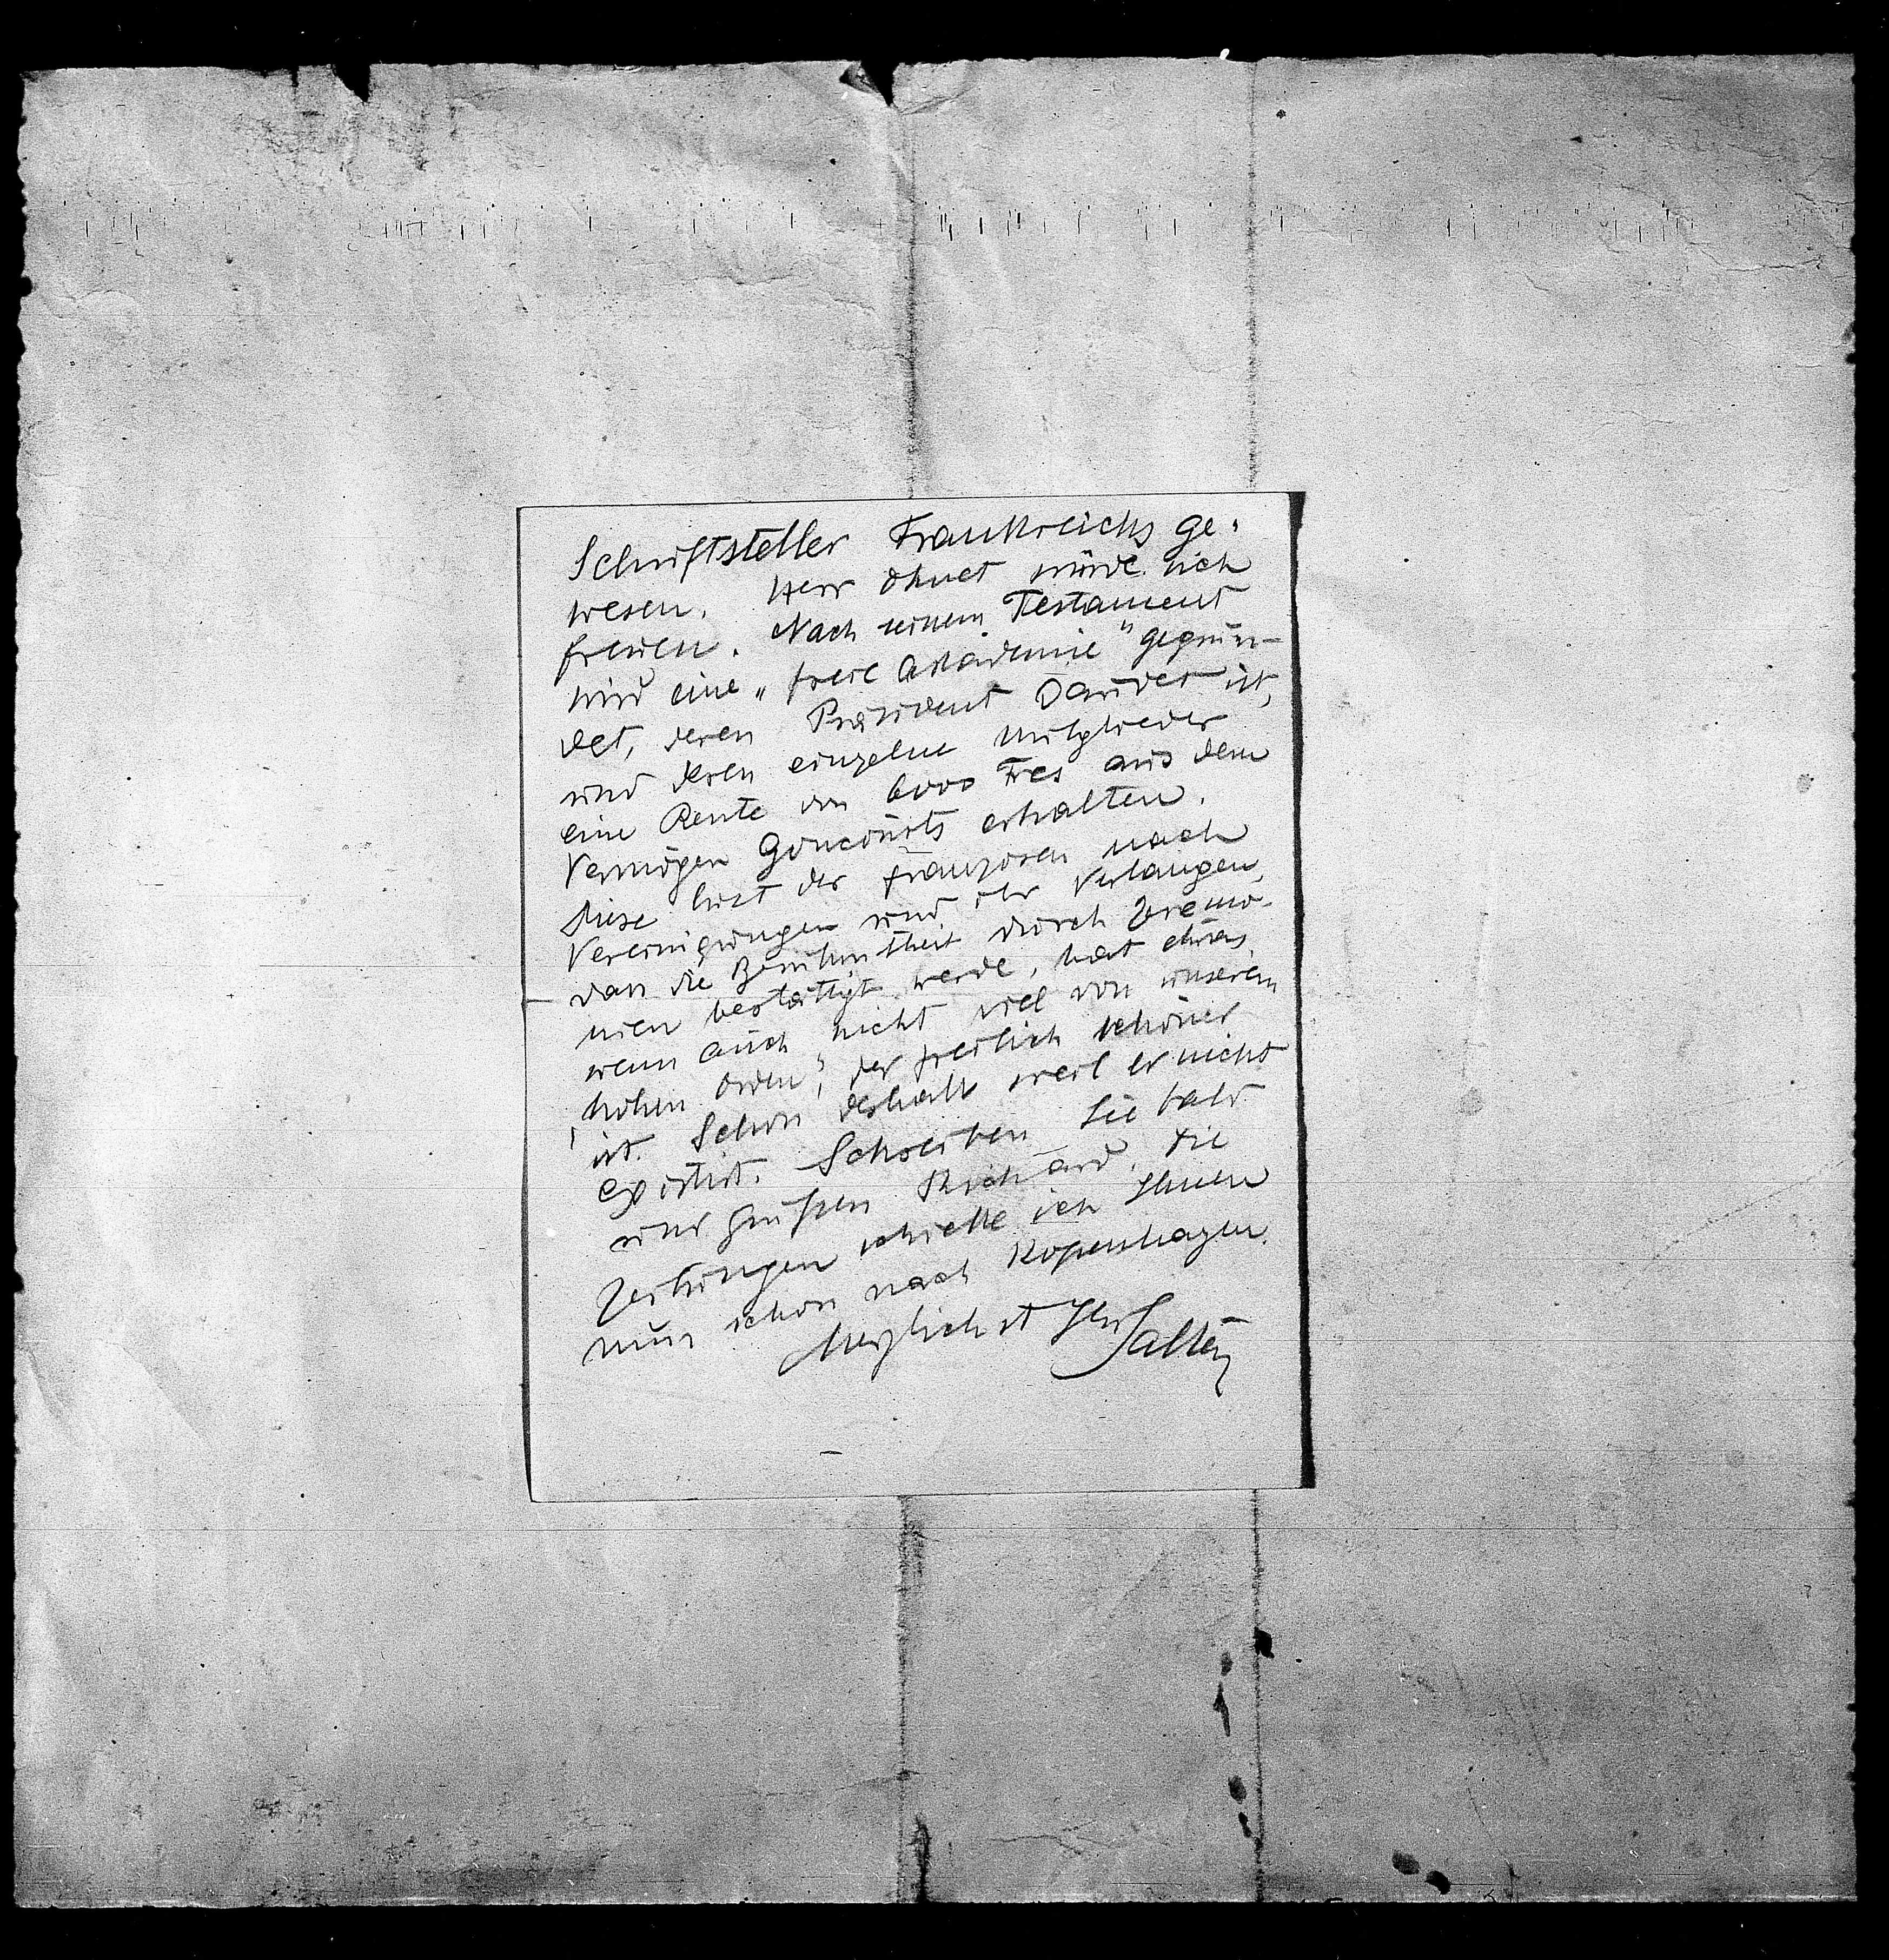 Schriftsteller Frankreichs ge-
wesen. Herr Ohnet würde sich
freuen. Nach seinem Testament
wird eine „freie Akademie" gegrün-
det, deren Präsident Daudet ist,
und deren einzelne Mitglieder
eine Rente von 6000 Frcs aus dem
Vermögen Goncourts erhalten.
Diese Lust der Franzosen nach
Vereinigungen und ihr Verlangen,
dass die Berühmtheit durch Zeremo-
nien bestättigt werde, hat etwas,
wenn auch nicht viel von unserem
„hohen Orden", der freilich schöner
ist. Schon deshalb weil er nicht
existirt. Schreiben Sie bald
und grüßen Richard. Die
Zeitungen schicke ich Ihnen
nun schon nach Kopenhagen.
Herzlichst Ihr
Salten